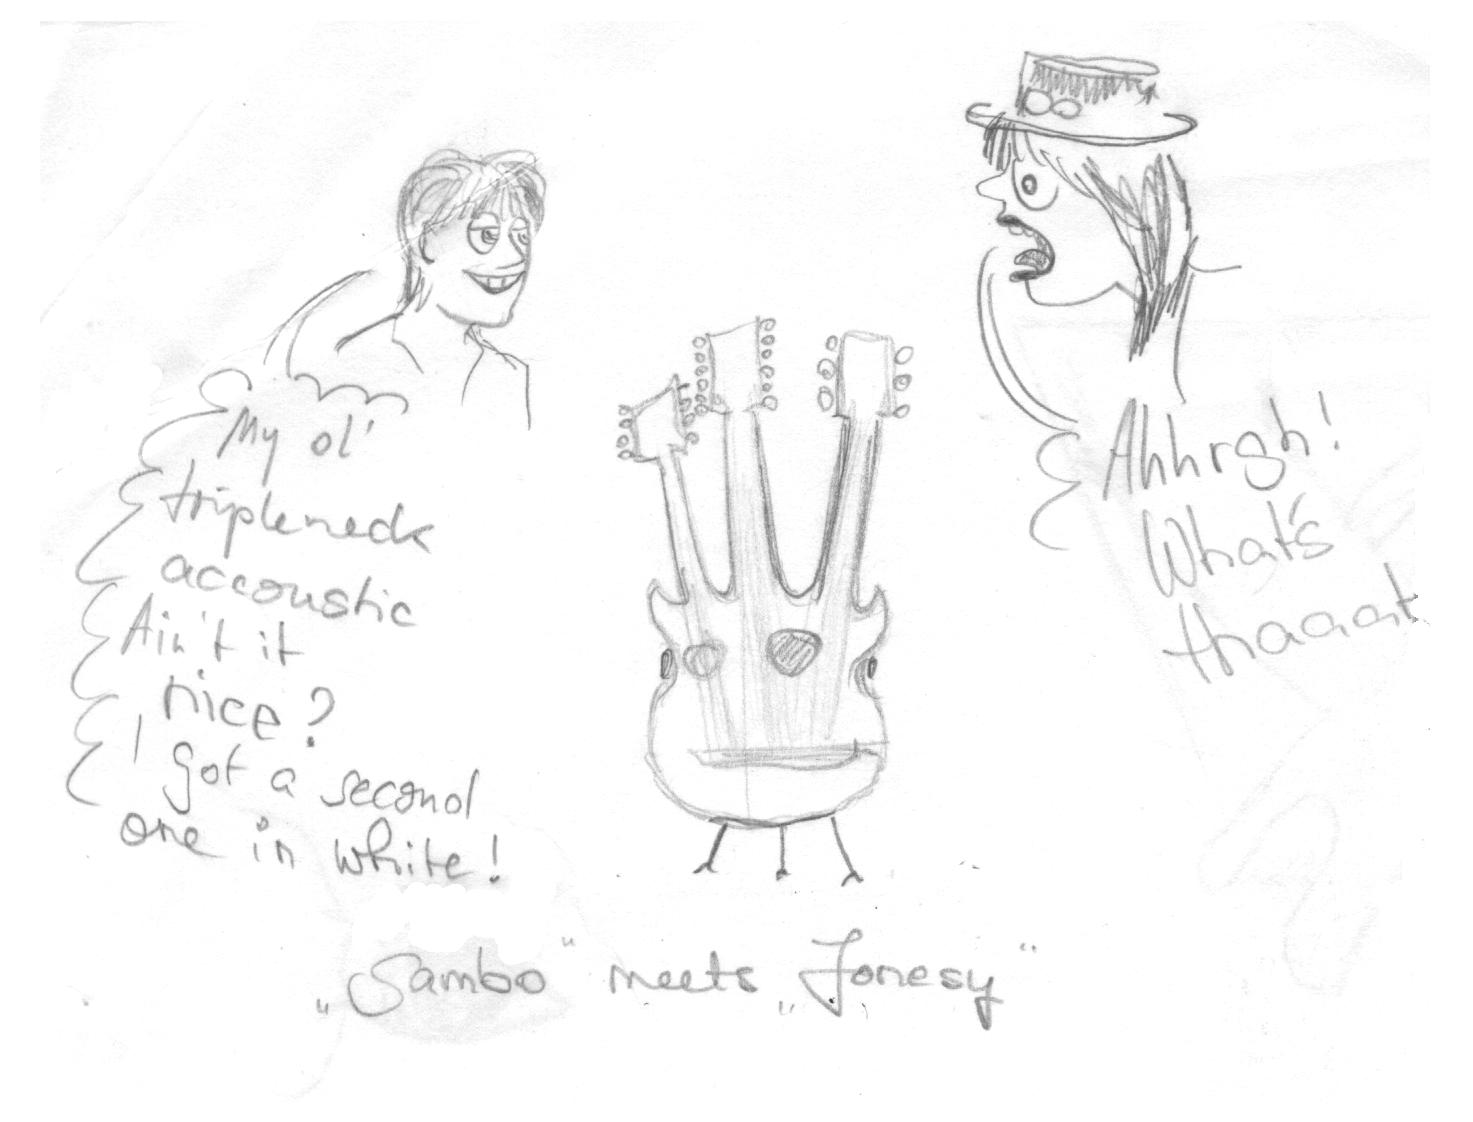 My ol'
tripleneck
accoustic
Ain't it
nice?
I got a second
one in white!
Ahhrgh!
What's
thaaaat
„Sambo" meets „Jonesy"